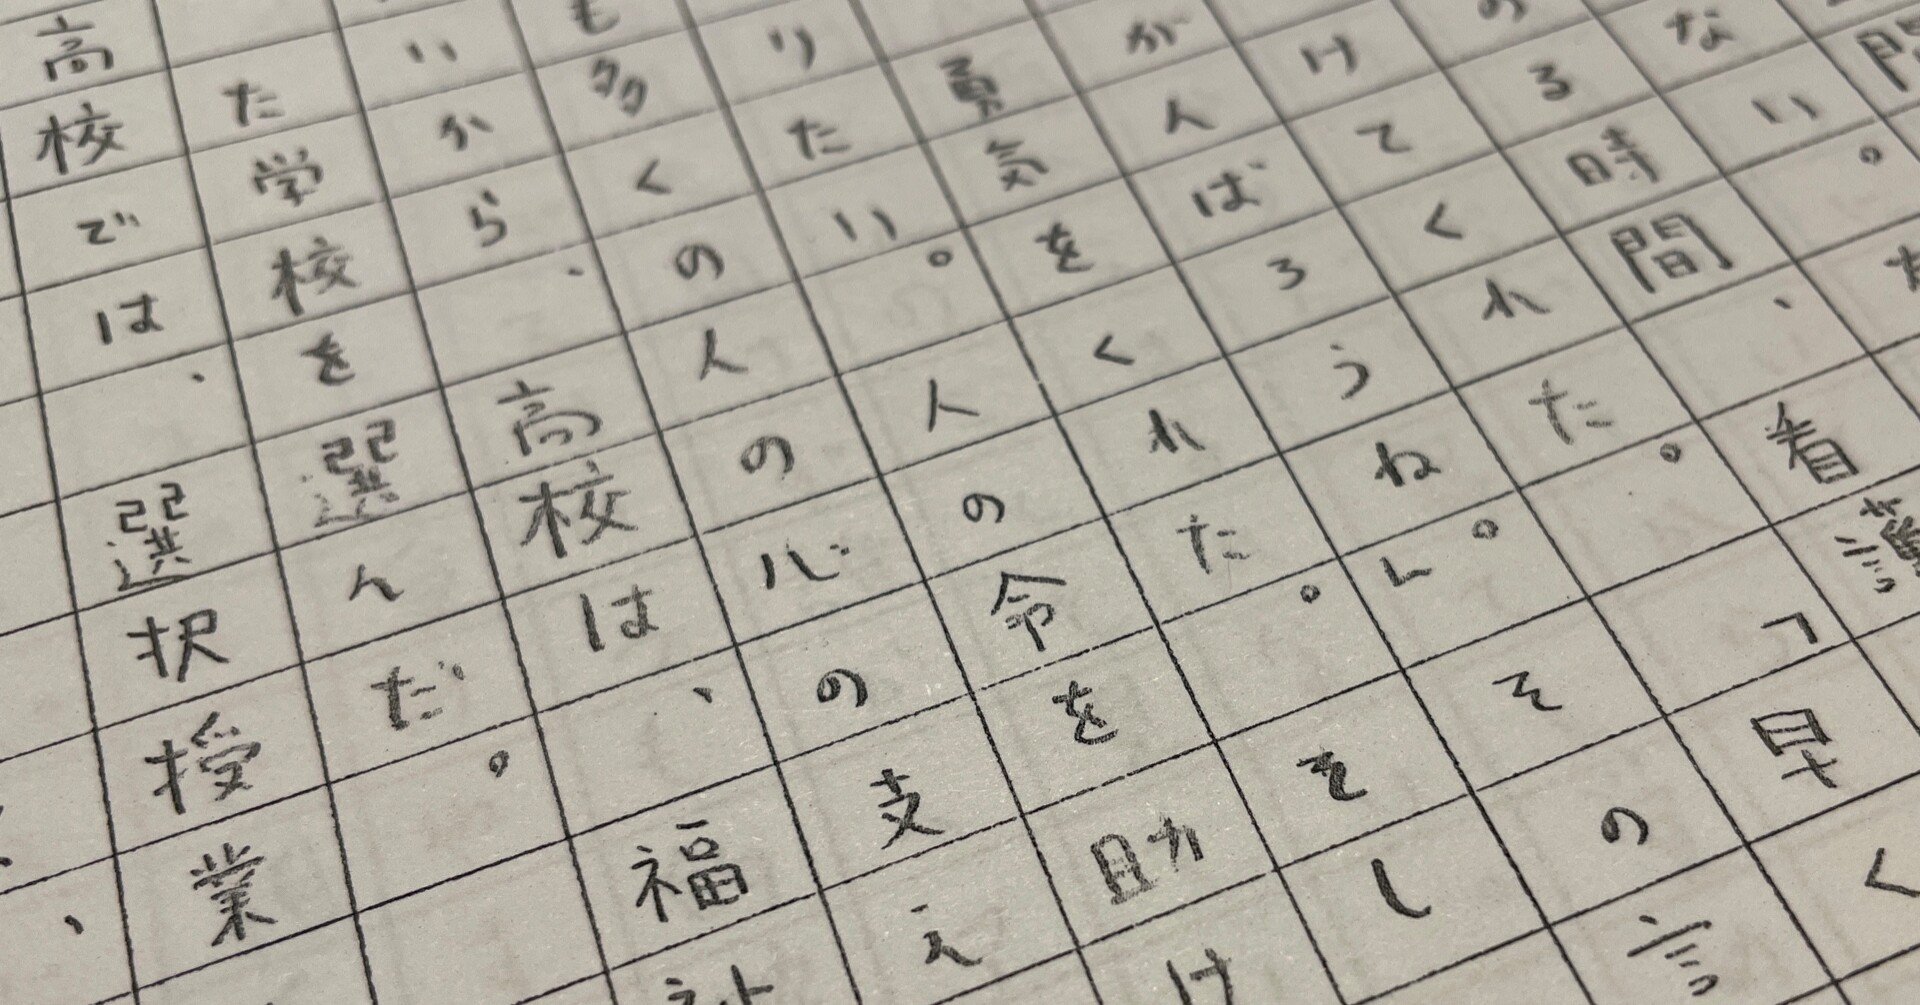 ない。
る時間、看護
けてくれた。「早く
がんばろうね。」その言
勇気をくれた。そし
りたい。人の命を助け
も多くの人の心の支え
いから、高校は、福祉
た学校を選んだ。
高校では、選択授業
、